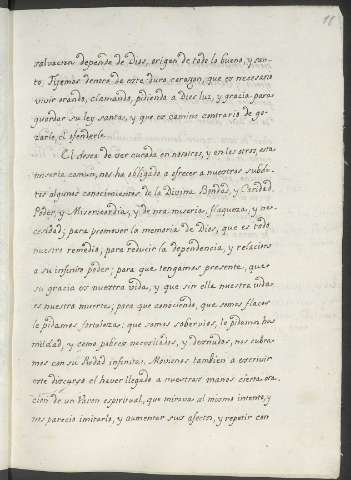 salvacion depende de Dios, origen de todo lo bueno, y san-
to. Fijemos dentro de este duro corazon, que es necesario
vivir orando, clamando, pidiendo a Dios luz, y gracia para
guardar su ley santa, y que es camino contrario de go-
zarle, el ofenderle.
El deseo de ver curada en nosotros, y en los otros, esta
miseria comun, nos ha obligado a ofrecer a nuestros subdi-
tos algunos conocimientos de la Divina Bondad, y Caridad,
Poder, y Misericordia, y de nra. miseria, flaqueza, y ne-
cesidad; para promover la memoria de Dios, que es todo
nuestro remedio; para reducir la dependencia, y relacion
a su infinito poder; para que tengamos presente, que
su gracia es nuestra vida, y que sin ella nuestra vida
es nuestra muerte; para que conociendo, que somos flacos
le pidamos fortaleza; que somos sobervios, le pidamos hu
mildad, y como pobres necesitados, y desnudos, nos cubra-
mos con su Piedad infinita. Movionos tambien a escrivir
este discurso el haver llegado a nuestras manos cierta ora-
cion de un Varon espiritual, que mirava al mismo intento, y
nos parecio imitarlo, y aumentar sus afectos, y repetir con